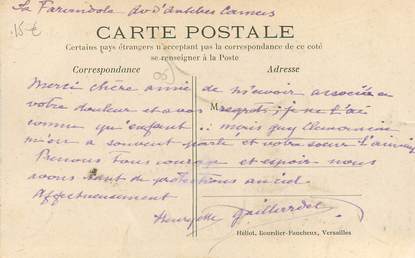 La Farandole Av d'Antibes Cannes
15€
CARTE POSTALE
Certains pays étrangers n'acceptant pas la correspondance de ce coté
se renseigner à la Poste
Correspondance Adresse
Merci chère amie de m'avoir associée
votre douleur et a vos regrets; je ne l'ai
connu qu'enfant .. mais Guy
m'en a souvent parlé et votre soeur l'aimait
Prenons tous courage et espoir nous
avons tant de protections au ciel.
Affectueusement
Henryette Gaillardet
Héliot, Bourdier-Faucheux, Versailles